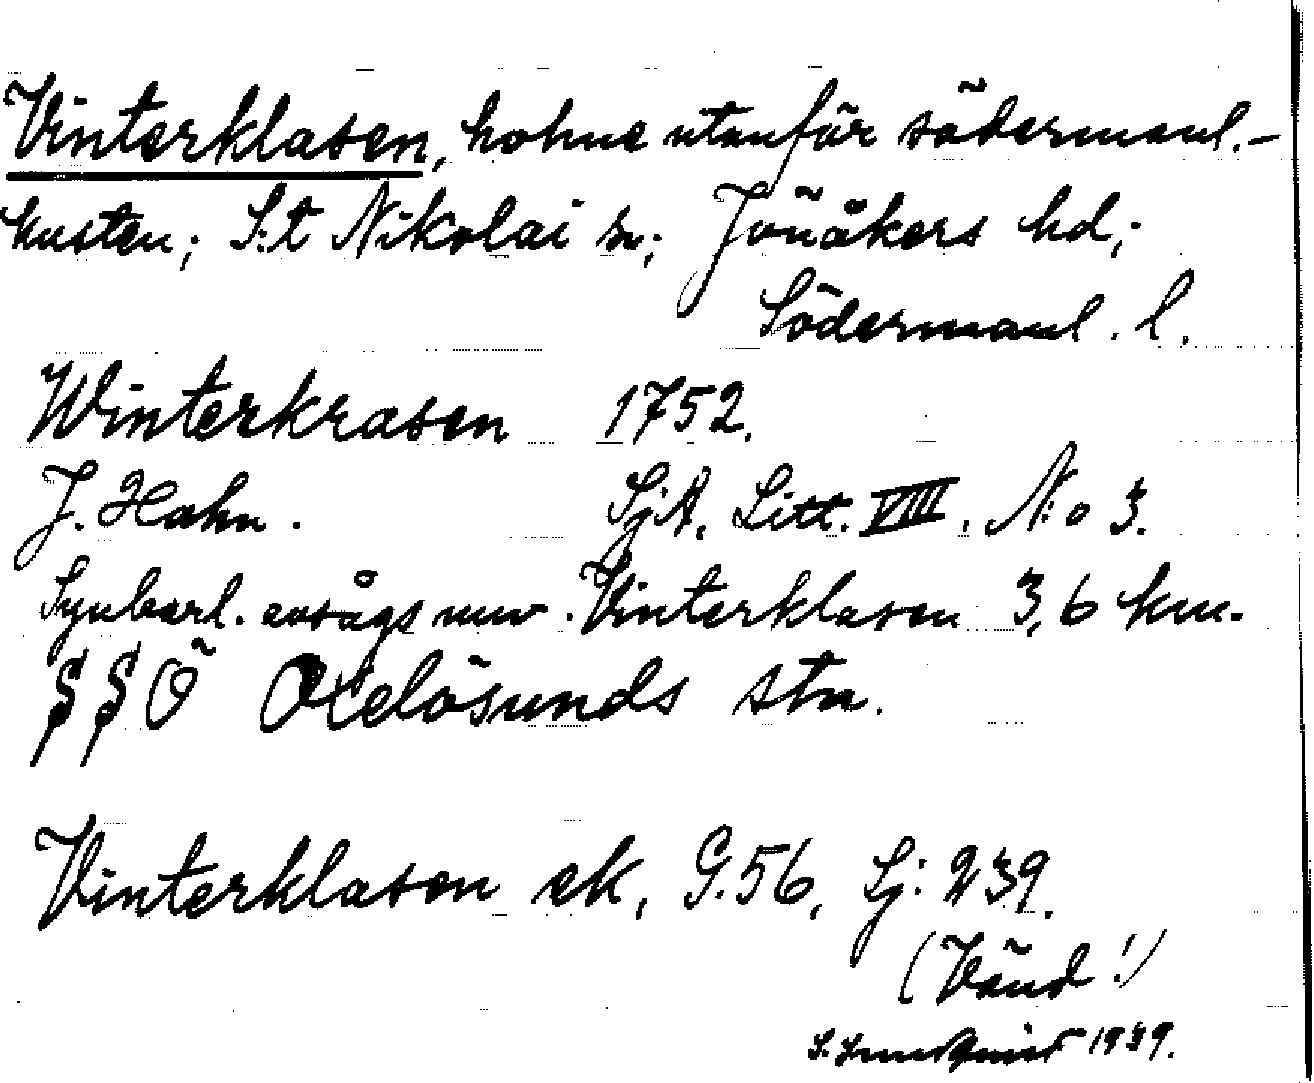 Vinterklasen, holme utanför södermanl.-
kusten; S:t Nikolai sn; Jönåkers hd;
Södermanl. l.
Winterkrasen 1752.
J. Hahn. SjA, Litt. VIII. N:o 3.
Synbarl. avsågs nuv. Vinterklasen 3,6 km.
SSÖ Oxelösunds stn.
Vinterklasen ek, G.56, Sj: 239.
(Vänd!)
S. Lundqvist 1939.